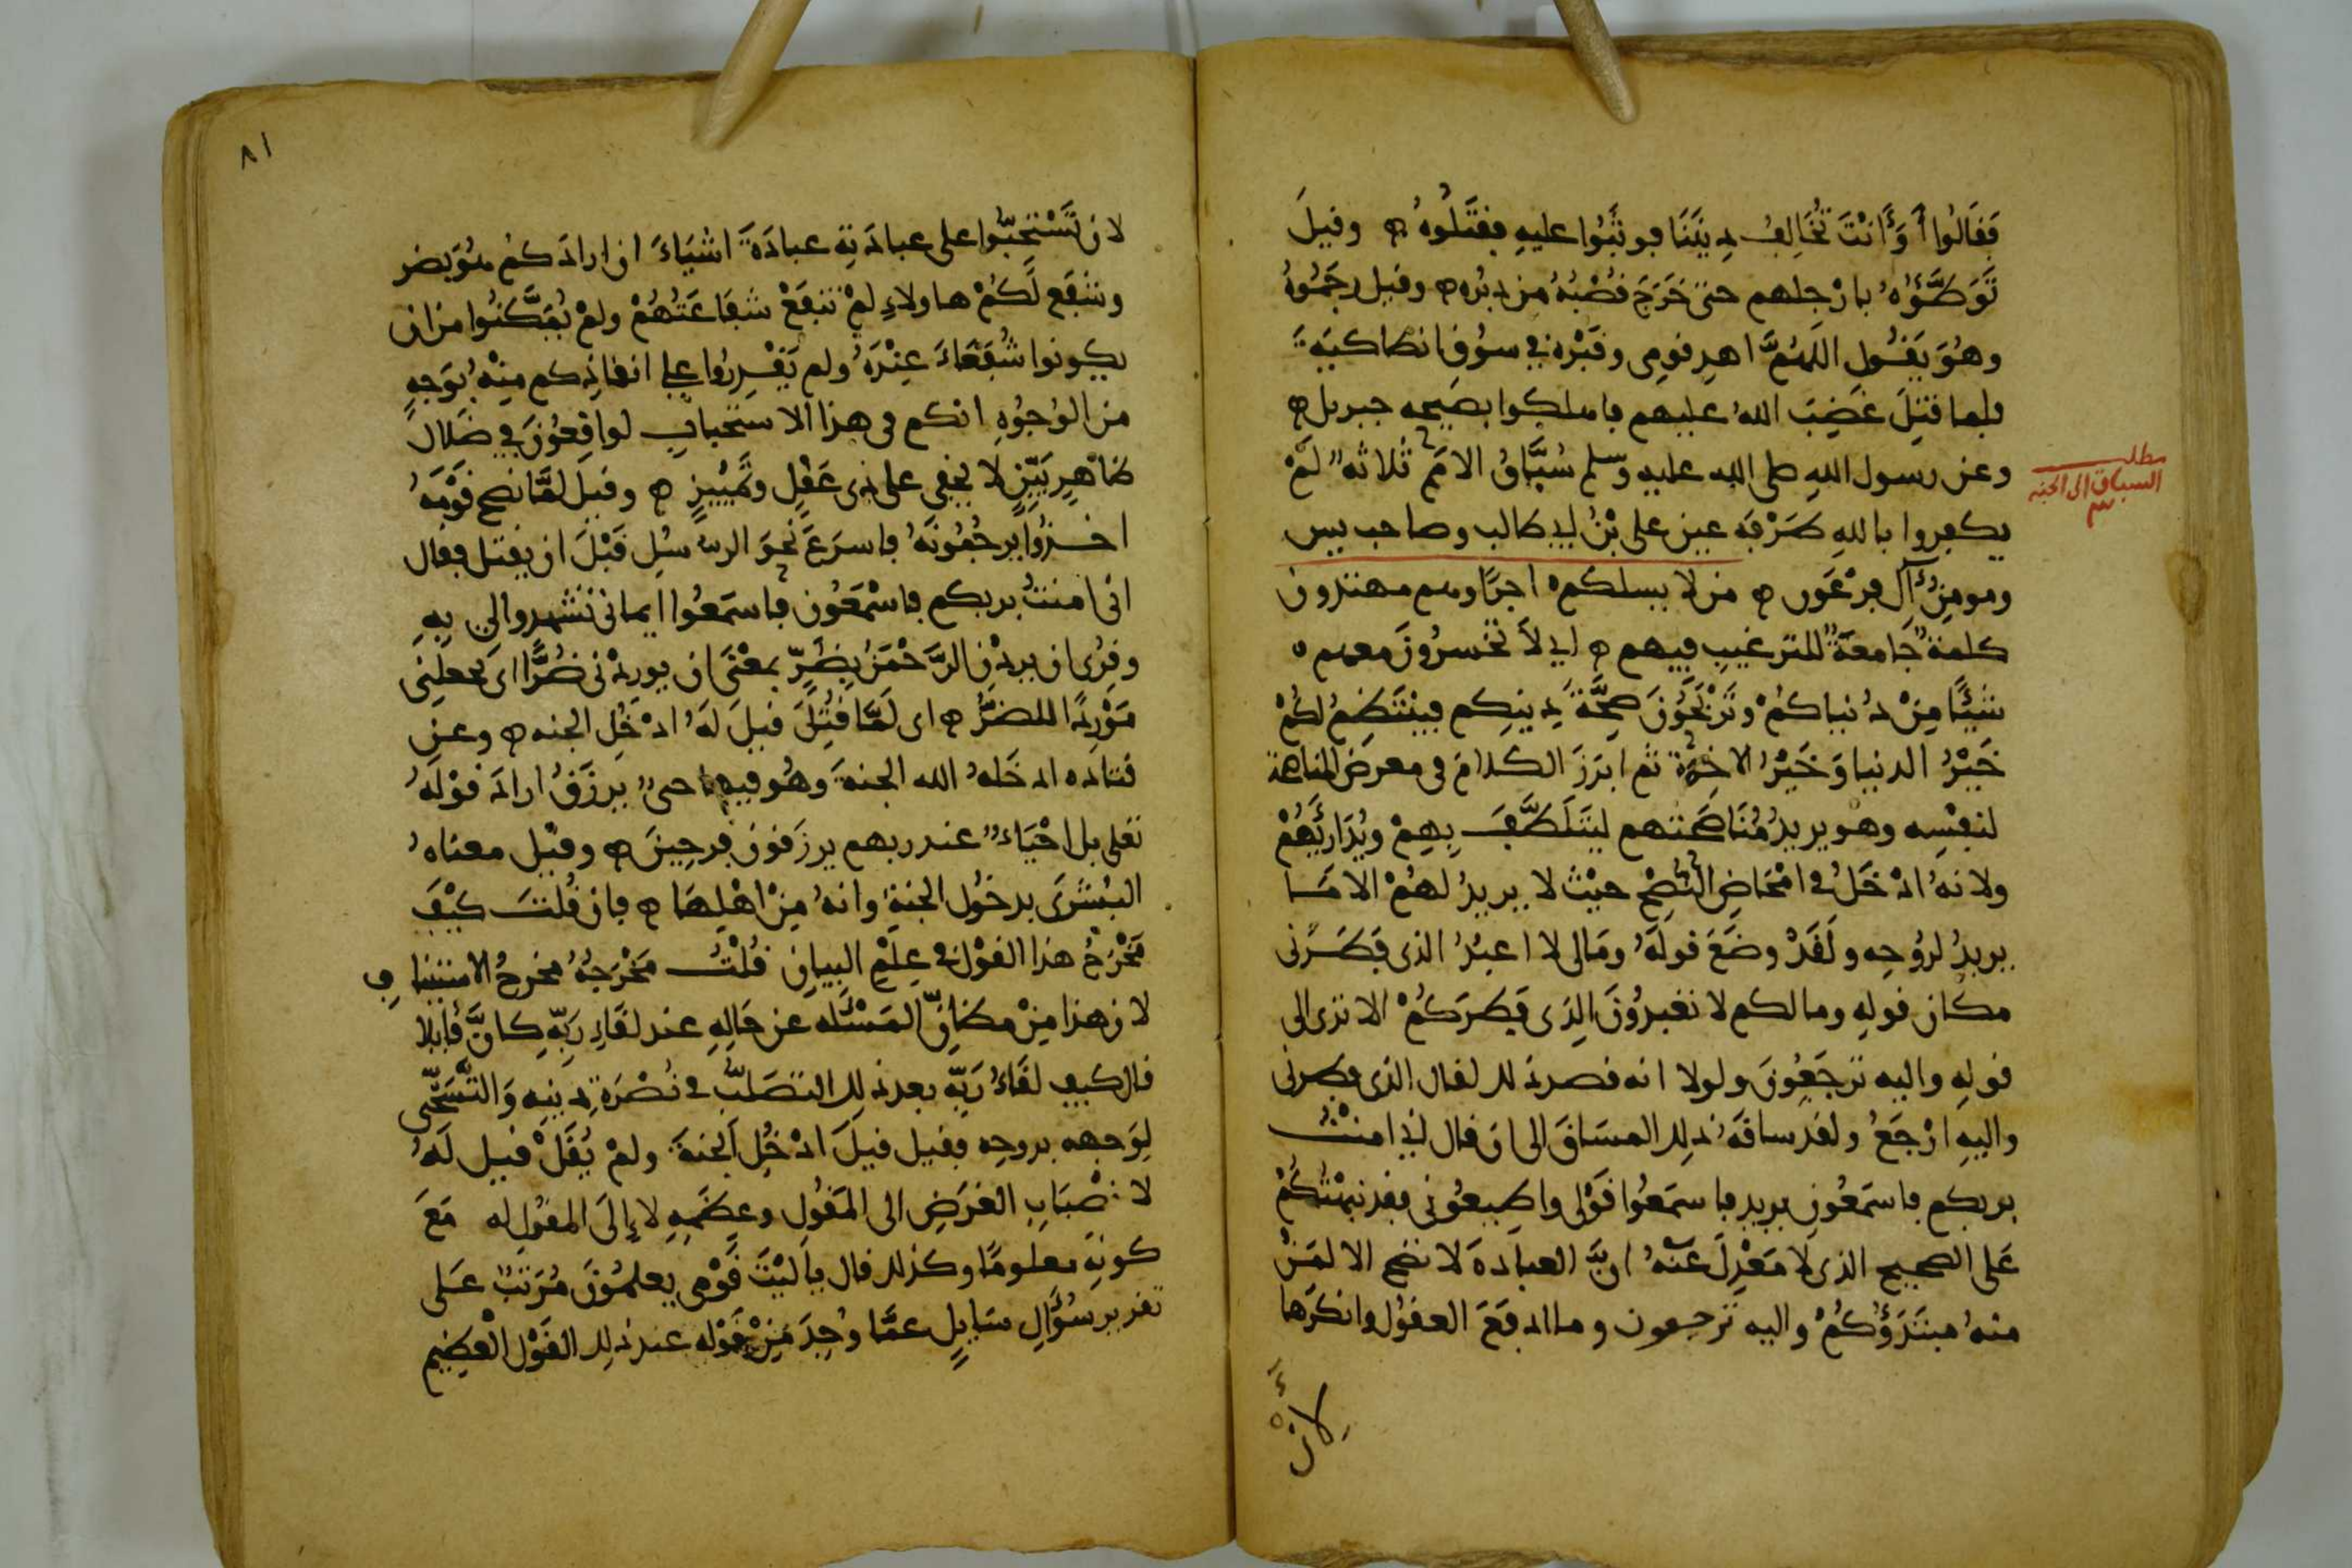 فقالوا أوأنت تخالف ديننا فوثبوا عليه فقتلوه وقيل
توطؤه بارجلهم حتى خرج قصبه من دبره وقيل رجموه
وهو يقول اللهم اهد قومى وقبره في سوق انطاكيه
فلما قتل غضب الله عليهم فاهلكوا بصيحه جبريل
وعن رسول الله صلى الله عليه وسلم سباق الامم ثلاثه لم
مطلب
السباق الى الجنه
٣
يكفروا بالله طرفه عين على بن ابي طالب وصاحب يس
ومومن آل فرعون من لا يسلكم اجرا وهم مهتدون
كلمة جامعة للترغيب فيهم اي لا تخسرون معهم
شيئا من دنياكم وتربحون صحة دينكم فينتظم لكم
خير الدنيا وخير الاخرة ثم ابرز الكلام في معرض المناصحة
لنفسه وهو يريد مناصحتهم ليتلطف بهم ويداريهم
ولانه ادخل في امحاض النصح حيث لا يريد لهم الا ما
يريد لروحه ولقد وضع قوله ومالى لا اعبد الذى فطرنى
مكان قوله ومالكم لا تعبدون الذى فطركم الا ترى الى
قوله واليه ترجعون ولولا انه قصد ذلك لقال الذى فطرنى
واليه ارجع ولقد ساقه ذلك المساق الى ان قال اني امنت
بربكم فاسمعون يريد فاسمعوا قولى واطيعونى فقد نبهتكم
على الصحيح الذى لا معدل عنه ان العبادة لا تصح الا لمن
منه مبتدؤكم واليه ترجعون وما ادفع العقول وانكرها
لأن
٨١
لان تستحبوا على عبادته عبادة اشياء ان ارادكم هو بضر
وشفع لكم هاولاء لم تنفع شفاعتهم ولم يمكنوا من ان
يكونوا شفعاء عنده ولم يقدروا على انقاذكم منه بوجه
من الوجوه انكم فى هذا الاستحباب لواقعون في ضلال
ظاهر بين لا يخفى على ذى عقل وتمييز وقيل لما نصح قومه
اخذوا يرجمونه فاسرع نحو الرسل قبل ان يقتل فقال
انى امنت بربكم فاسمعون فاسمعوا ايمانى تشهدوا لي به
وقرى ان يردن الرحمن بضر بمعنى ان يوردنى ضرا اى يجعلنى
موردا للضر اى لما قتل قيل له ادخل الجنه وعن
قتاده ادخله الله الجنة وهو فيها حى يرزق اراد قوله
تعلى بل احياء عند ربهم يرزقون فرحين وقيل معناه
البشرى بدخول الجنة وانه من اهلها فان قلت كيف
مخرج هذا القول في علم البيان قلت مخرجه مخرج الاستيناف
لان هذا من مظان المسئله عن حاله عند لقاء ربه كان قايلا
قال كيف لقاء ربه بعد ذلك التصلب في نصرة دينه والتسخى
لوجهه بروحه فقيل قيل ادخل الجنة ولم يقل قيل له
لانصباب الغرض الى المقول وعظمه لا إلى المقول له مع
كونه معلوما وكذلك قال ياليت قومى يعلمون مرتب على
تقدير سؤال سايل عما وجد من قوله عند ذلك القول العظيم